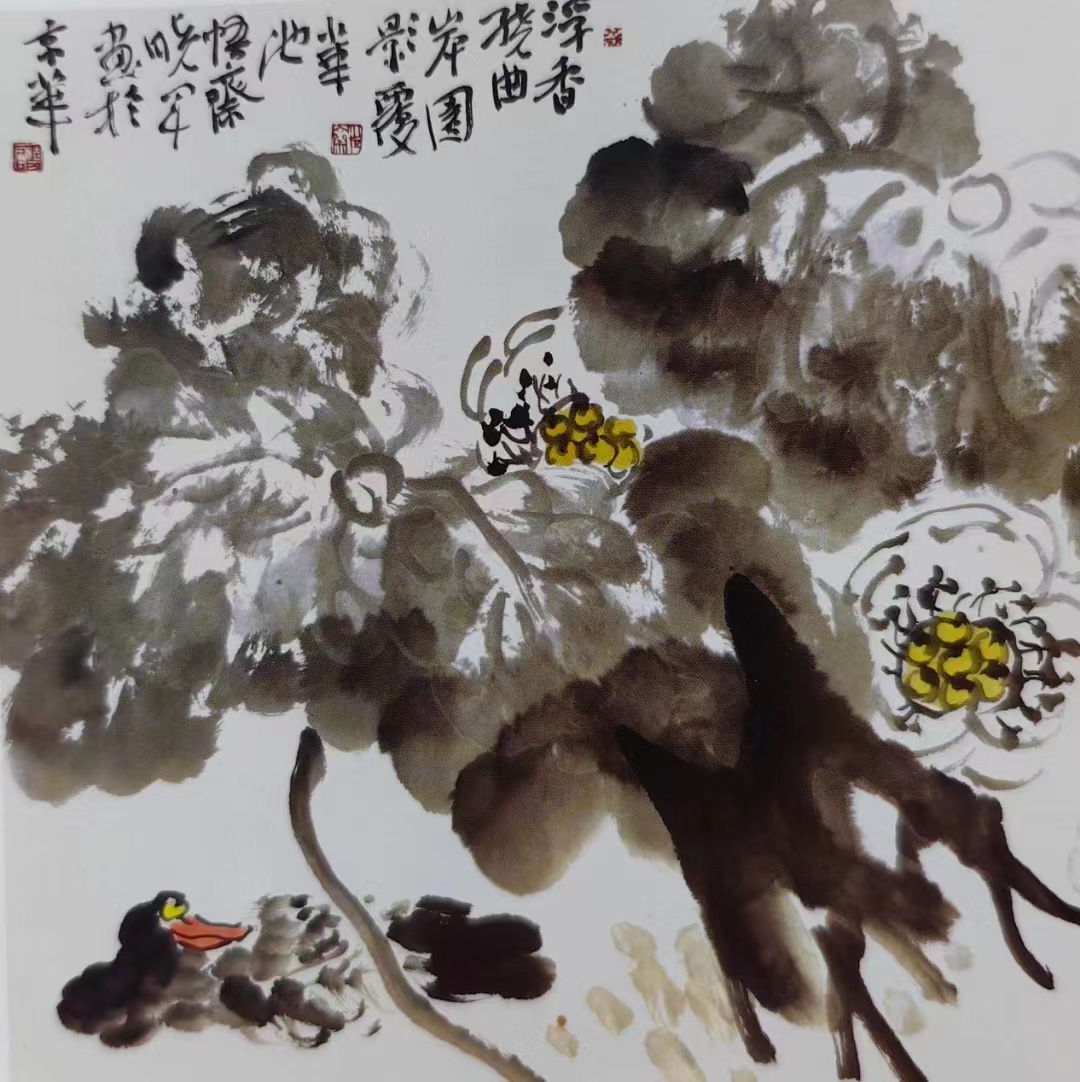 浮香
繞曲
岸圓
影覆
華
池
悟齋
晓军
畫於
京華